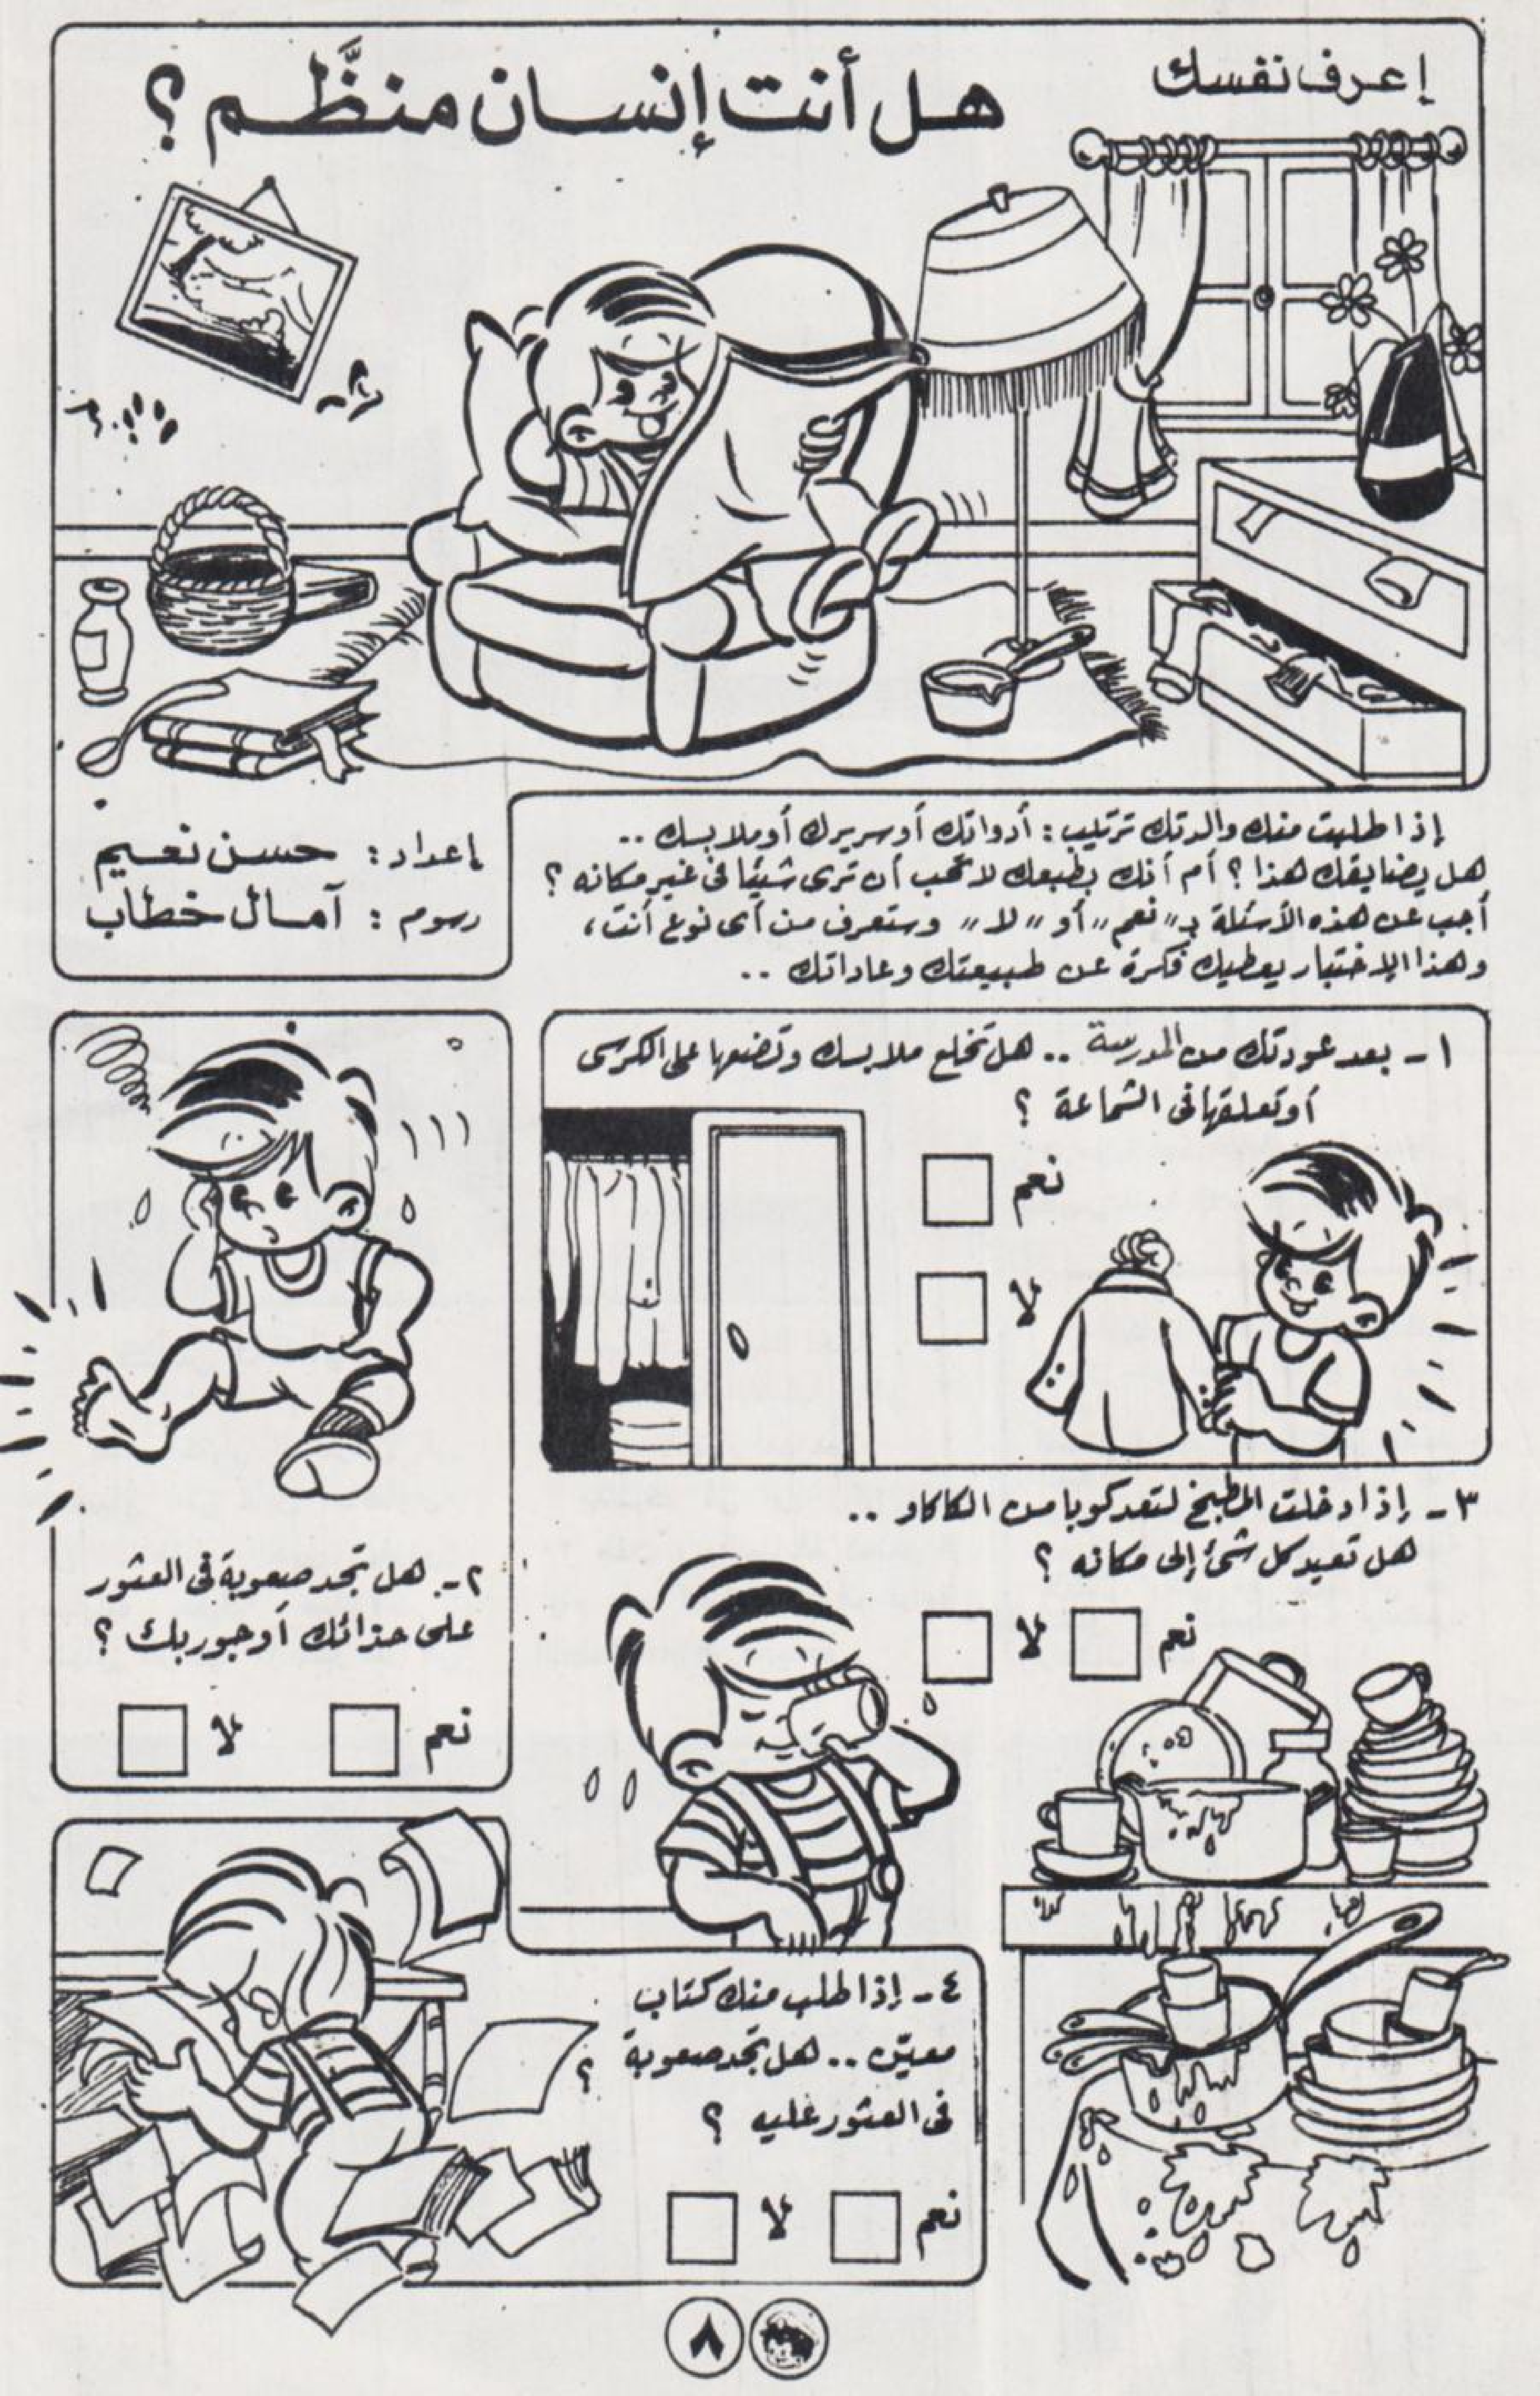 إعرف نفسك
هل أنت إنسان منظَّم ؟
إعداد : حسن نعيم
رسوم : آمال خطاب
إذا طلبت منك والدتك ترتيب : أدواتك أو سريرك أو ملابسك ..
هل يضايقك هذا ؟ أم أنك بطبعك لا تحب أن ترى شيئا فى غير مكانه ؟
أجب عن هذه الأسئلة بـ " نعم " أو " لا " وستعرف من أى نوع أنت ،
وهذا الإختبار يعطيك فكرة عن طبيعتك وعاداتك ..
١ - بعد عودتك من المدرسة .. هل تخلع ملابسك وتضعها على الكرسى
أو تعلقها فى الشماعة ؟
نعم
لا
٢ - هل تجد صعوبة فى العثور
على حذائك أو جوربك ؟
نعم لا
٣ - إذا دخلت المطبخ لتعد كوبا من الكاكاو ..
هل تعيد كل شئ إلى مكانه ؟
نعم لا
٤ - إذا طلب منك كتاب
معين .. هل تجد صعوبة ؟
فى العثور عليه ؟
نعم لا
٨